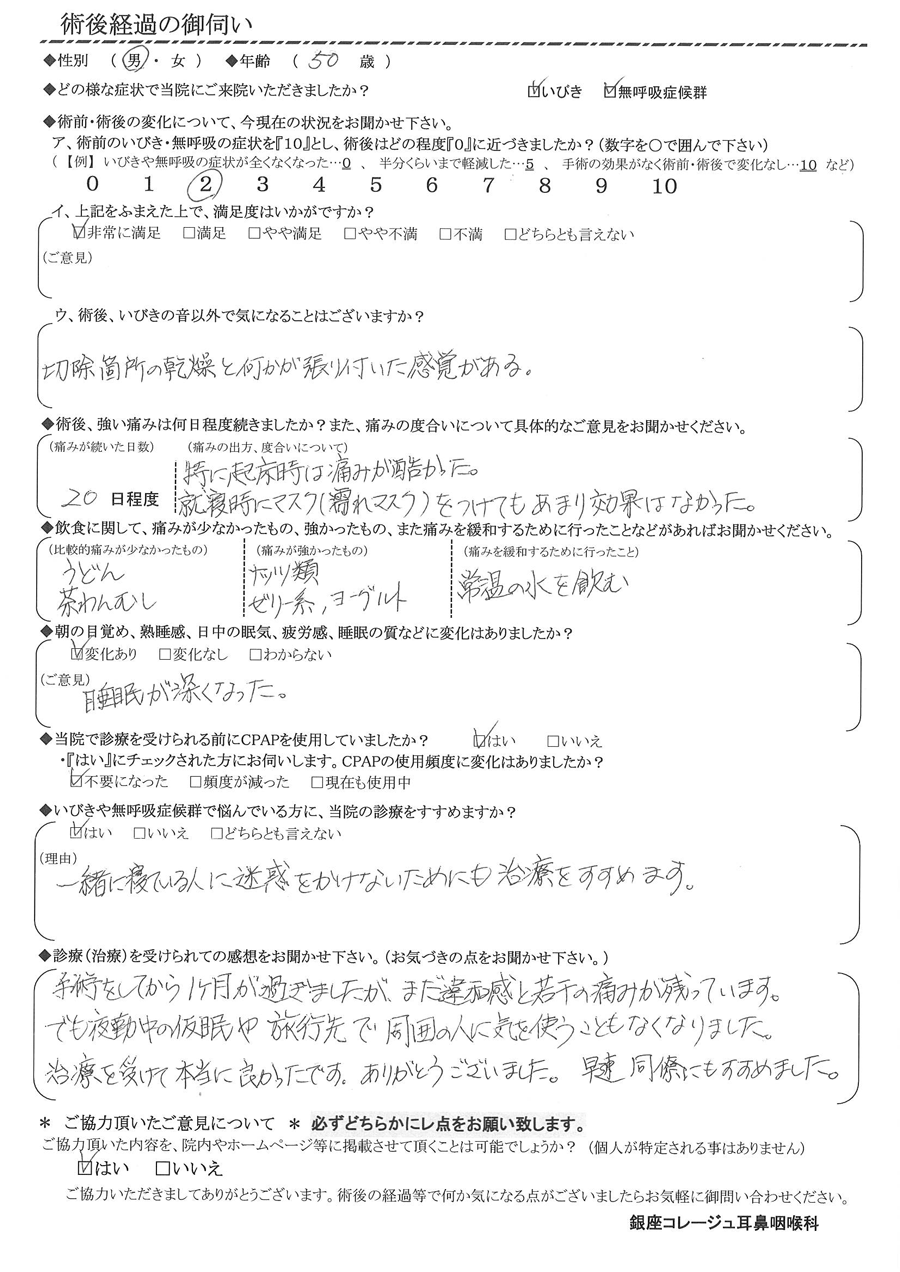 術後経過の御伺い
◆性別 （ 男 ・ 女 ） ◆年齢 （ 50 歳 ）
◆どの様な症状で当院にご来院いただきましたか？ ☑いびき ☑無呼吸症候群
◆術前・術後の変化について、今現在の状況をお聞かせ下さい。
ア、術前のいびき・無呼吸の症状を『10』とし、術後はどの程度『0』に近づきましたか？（数字を○で囲んで下さい）
（【例】 いびきや無呼吸の症状が全くなくなった…0 、 半分くらいまで軽減した…5 、 手術の効果がなく術前・術後で変化なし…10 など）
0 1 2 3 4 5 6 7 8 9 10
イ、上記をふまえた上で、満足度はいかがですか？
☑非常に満足 □満足 □やや満足 □やや不満 □不満 □どちらとも言えない
（ご意見）
ウ、術後、いびきの音以外で気になることはございますか？
切除箇所の乾燥と何かが張り付いた感覚がある。
◆術後、強い痛みは何日程度続きましたか？また、痛みの度合いについて具体的なご意見をお聞かせください。
（痛みが続いた日数） （痛みの出方、度合いについて）
特に起床時は痛みが酷かった。
20 日程度 就寝時にマスク（濡れマスク）をつけてもあまり効果はなかった。
◆飲食に関して、痛みが少なかったもの、強かったもの、また痛みを緩和するために行ったことなどがあればお聞かせください。
（比較的痛みが少なかったもの） （痛みが強かったもの） （痛みを緩和するために行ったこと）
うどん ナッツ類 常温の水を飲む
茶わんむし ゼリー系，ヨーグルト
◆朝の目覚め、熟睡感、日中の眠気、疲労感、睡眠の質などに変化はありましたか？
☑変化あり □変化なし □わからない
（ご意見）
睡眠が深くなった。
◆当院で診療を受けられる前にCPAPを使用していましたか？ ☑はい □いいえ
・『はい』にチェックされた方にお伺いします。CPAPの使用頻度に変化はありましたか？
☑不要になった □頻度が減った □現在も使用中
◆いびきや無呼吸症候群で悩んでいる方に、当院の診療をすすめますか？
☑はい □いいえ □どちらとも言えない
（理由）
一緒に寝ている人に迷惑をかけないためにも治療をすすめます。
◆診療（治療）を受けられての感想をお聞かせ下さい。（お気づきの点をお聞かせ下さい。）
手術をしてから1ヶ月が過ぎましたが、まだ違和感と若干の痛みが残っています。
でも夜勤中の仮眠や旅行先で周囲の人に気を使うこともなくなりました。
治療を受けて本当に良かったです。ありがとうございました。早速同僚にもすすめました。
＊ ご協力頂いたご意見について ＊ 必ずどちらかにレ点をお願い致します。
ご協力頂いた内容を、院内やホームページ等に掲載させて頂くことは可能でしょうか？（個人が特定される事はありません）
☑はい □いいえ
ご協力いただきましてありがとうございます。術後の経過等で何か気になる点がございましたらお気軽に御問い合わせください。
銀座コレージュ耳鼻咽喉科